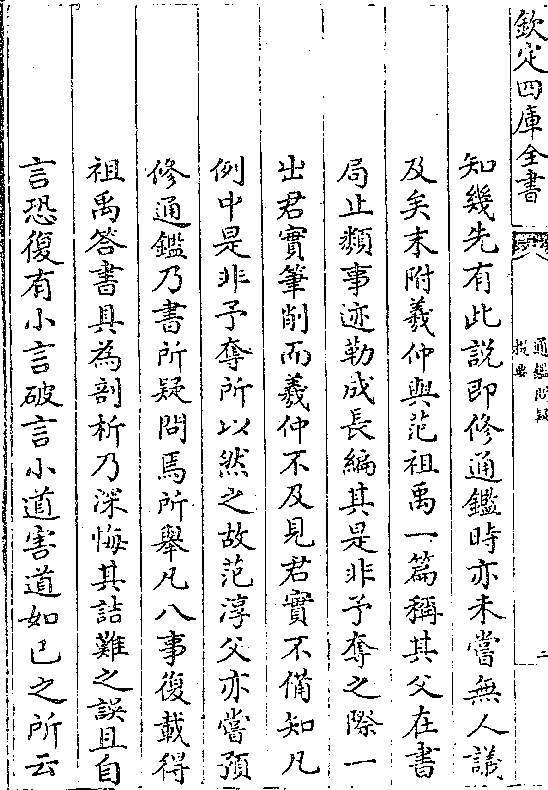 欽定四庫全書
通鑑問疑
提要
二
知幾先有此説即修通鑑時亦未嘗無人議
及矣末附羲仲與范祖禹一篇稱其父在書
局止類事迹勒成長編其是非予奪之際一
出君實筆削而羲仲不及見君實不備知凡
例中是非予奪所以然之故范淳父亦嘗預
修通鑑乃書所疑問焉所舉凡八事復載得
祖禹答書具為剖析乃深悔其詰難之誤且自
言恐復有小言破言小道害道如己之所云